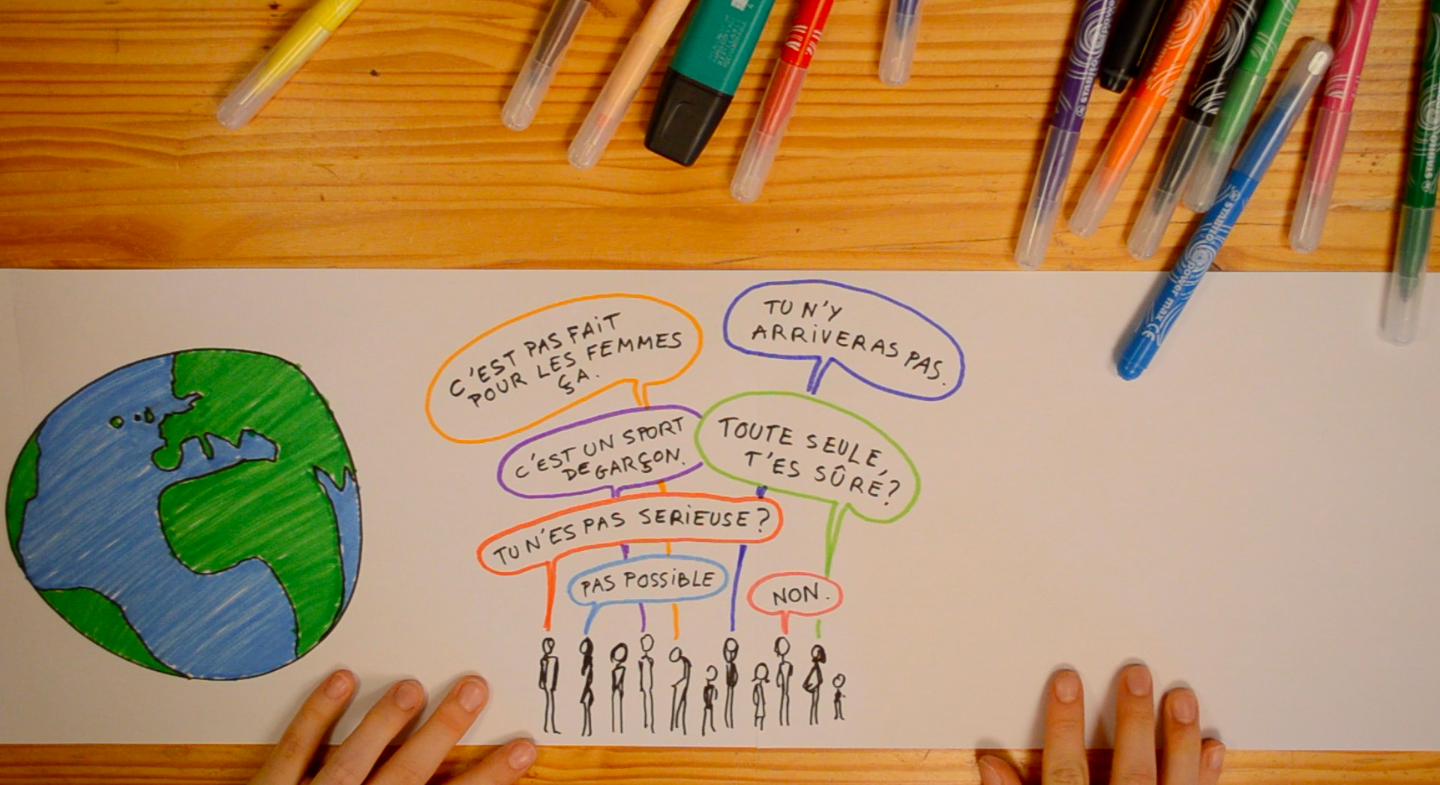 C'EST PAS FAIT
POUR LES FEMMES
ÇA.
TU N'Y
ARRIVERAS PAS.
C'EST UN SPORT
DE GARÇON.
TOUTE SEULE,
T'ES SÛRE?
TU N'ES PAS SERIEUSE?
PAS POSSIBLE
NON.
STABILO
STABILO power max CE